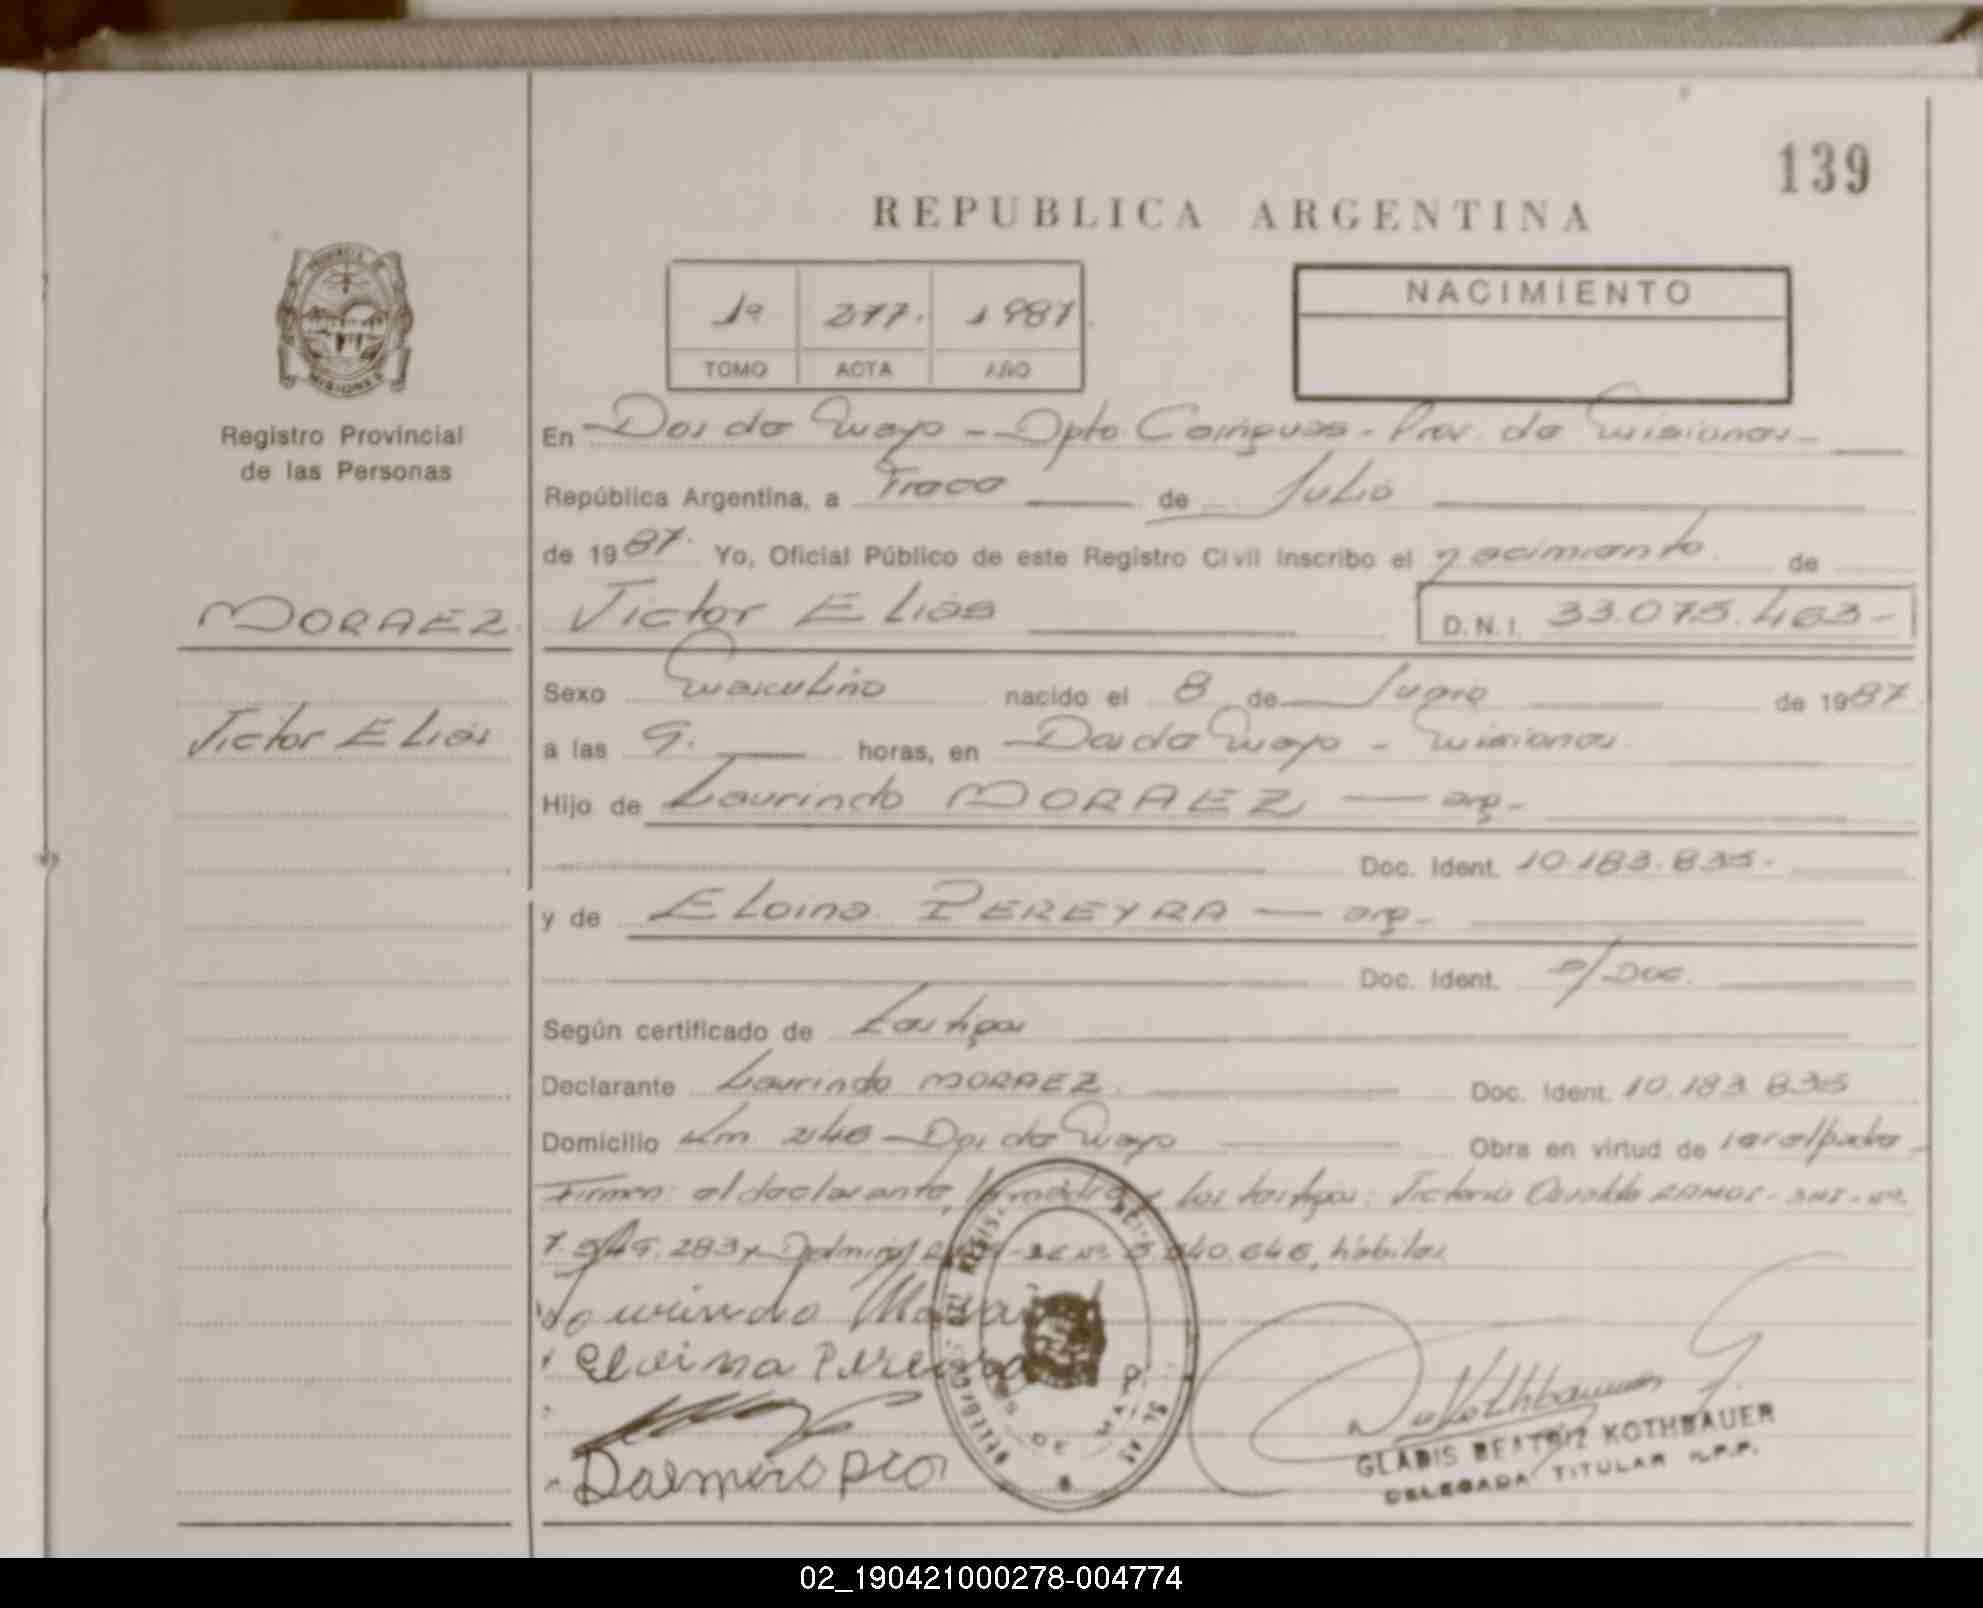 139
REPUBLICA ARGENTINA
1º 277. 1987.
TOMO ACTA AÑO
NACIMIENTO
PROVINCIA DE MISIONES
Registro Provincial
de las Personas
En Dos de Mayo - Dpto. Cainguas - Prov. de Misiones -
República Argentina, a Trece de Julio
de 1987. Yo, Oficial Público de este Registro Civil inscribo el nacimiento de
MORAEZ. Victor Elias D.N.I. 33.075.463-
Sexo Masculino nacido el 8 de Junio de 1987
Victor Elias
a las 9. horas, en Dos de Mayo - Misiones
Hijo de Laurindo MORAEZ — arg-
Doc. Ident. 10.183.835-
y de Eloina PEREYRA — arg-
Doc. Ident. s/Doc.
Según certificado de Testigos
Declarante Laurindo MORAEZ. Doc. Ident. 10.183.835
Domicilio Km. 246 - Dos de Mayo Obra en virtud de ser el padre -
Firman: el declarante, la madre y los testigos: Victorio Osvaldo RAMOS - DNI - Nº
283 y Dalmiro Nº 640.646, hábiles
Laurindo
Eloina Pereira
Dalmiro
DOS DE MAYO
GLADIS BEATRIZ KOTHBAUER
DELEGADA TITULAR R.P.P.
02_190421000278-004774